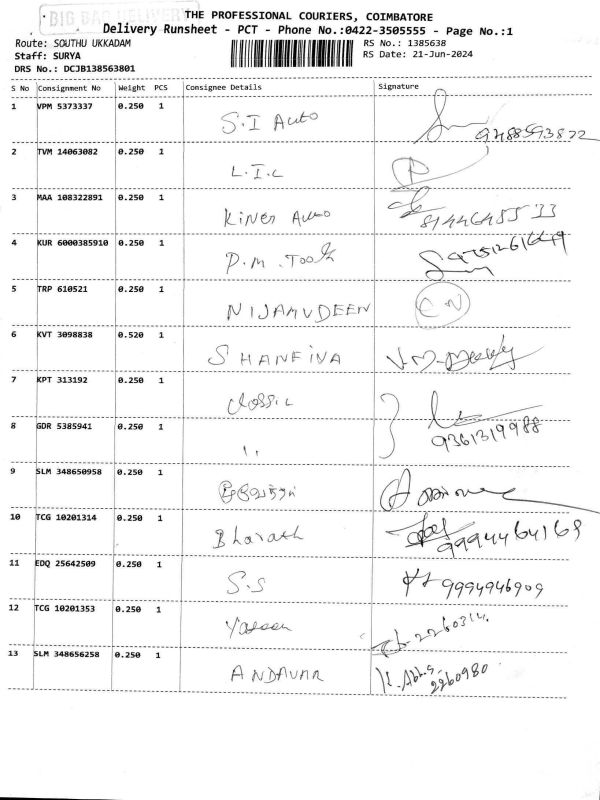 BIG BAG DELIVERY
THE PROFESSIONAL COURIERS, COIMBATORE
Delivery Runsheet - PCT - Phone No.:0422-3505555 - Page No.:1
Route: SOUTHU UKKADAM
RS No.: 1385638
Staff: SURYA
RS Date: 21-Jun-2024
DRS No.: DCJB138563801
S No Consignment No Weight PCS Consignee Details Signature
1 VPM 5373337 0.250 1 S.I Auto
2 TVM 14063082 0.250 1 L.I.C
3 MAA 108322891 0.250 1 Kiner Auto
4 KUR 6000385910 0.250 1 P.M. Tools
5 TRP 610521 0.250 1 NIJAMUDEEN CN
6 KVT 3098838 0.520 1 SHANFIVA
7 KPT 313192 0.250 1
8 GDR 5385941 0.250 1 " 9361319988
9 SLM 348650958 0.250 1
10 TCG 10201314 0.250 1 Bharath 9994464168
11 EDQ 25642509 0.250 1 S.S 9994946909
12 TCG 10201353 0.250 1 Yaseen 2260314
13 SLM 348656258 0.250 1 ANDAVAR K. Abbas 2260980